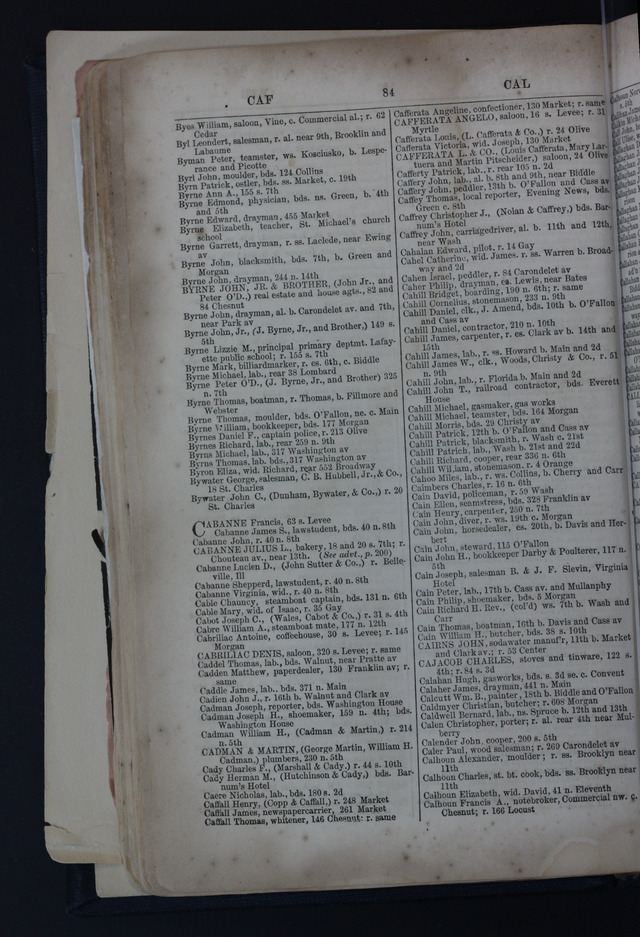 CAF
84
CAL
Byos William, saloon, Vine, c. Commercial al.; r. 62
Cedar
Byl Leondert, salesman, r. al. near 9th, Brooklyn and
Labaume
Byman Peter, teamster, ws. Kosciusko, b. Lespe-
rance and Picotte
Byri John, moulder, bds. 124 Collins
Byrn Patrick, ostler, bds. ss. Market, c. 19th
Byrne Ann A., 155 s. 7th
Byrne Edmond, physician, bds. ns. Green, b. 4th
and 5th
Byrne Edward, drayman, 455 Market
Byrne Elizabeth, teacher, St. Michael's church
school
Byrne Garrett, drayman, r. ss. Laclede, near Ewing
av
Byrne John, blacksmith, bds. 7th, b. Green and
Morgan
Byrne John, drayman, 244 n. 14th
BYRNE JOHN, JR. & BROTHER, (John Jr., and
Peter O'D.,) real estate and house agts., 82 and
84 Chesnut
Byrne John, drayman, al. b. Carondelet av. and 7th,
near Park av
Byrne John, Jr., (J. Byrne, Jr., and Brother,) 149 s.
5th
Byrne Lizzie M., principal primary deptmt. Lafay-
ette public school; r. 155 s. 7th
Byrne Mark, billiardmarker, r. es. 6th, c. Biddle
Byrne Michael, lab., rear 38 Lombard
Byrne Peter O'D., (J. Byrne, Jr., and Brother) 325
n. 7th
Byrne Thomas, boatman, r. Thomas, b. Fillmore and
Webster
Byrne Thomas, moulder, bds. O'Fallon, ne. c. Main
Byrne William, bookkeeper, bds. 177 Morgan
Byrnes Daniel F., captain police, r. 213 Olive
Byrnes Richard, lab., rear 259 n. 9th
Byrns Michael, lab., 317 Washington av
Byrns Thomas, lab. bds., 317 Washington av
Byron Eliza, wid. Richard, rear 552 Broadway
Bywater George, salesman, C. B. Hubbell, Jr., & Co.,
18 St. Charles
Bywater John C., (Dunham, Bywater, & Co.,) r. 20
St. Charles
CABANNE Francis, 63 s. Levee
Cabanne James S., lawstudent, bds. 40 n. 8th
Cabanne John, r. 40 n. 8th
CABANNE JULIUS L., bakery, 18 and 20 s. 7th; r.
Chouteau av., near 13th. (See advt., p. 200)
Cabanne Lucien D., (John Sutter & Co.,) r. Belle-
ville, Ill
Cabanne Shepperd, lawstudent, r. 40 n. 8th
Cabanne Virginia, wid., r. 40 n. 8th
Cabie Chauncy, steamboat captain, bds. 131 n. 6th
Cabie Mary, wid. of Isaac, r. 35 Gay
Cabot Joseph C., (Wales, Cabot & Co.,) r. 31 s. 4th
Cabre William A., steamboat mate, 177 n. 12th
Cabrillac Antoine, coffeehouse, 30 s. Levee; r. 145
Morgan
CABRILIAC DENIS, saloon, 329 s. Levee; r. same
Caddel Thomas, lab., bds. Walnut, near Pratte av
Cadden Matthew, paperdealer, 130 Franklin av; r.
same
Caddle James, lab., bds. 371 n. Main
Cadien John J., r. 16th b. Walnut and Clark av
Cadman Joseph, reporter, bds. Washington House
Cadman Joseph H., shoemaker, 159 n. 4th; bds.
Washington House
Cadman William H., (Cadman & Martin,) r. 214
n. 5th
CADMAN & MARTIN, (George Martin, William H.
Cadman,) plumbers, 230 n. 5th
Cady Charles F., (Marshall & Cady,) r. 44 s. 10th
Cady Herman M., (Hutchinson & Cady,) bds. Bar-
num's Hotel
Caere Nicholas, lab., bds. 180 s. 2d
Caffall Henry, (Copp & Caffall,) r. 248 Market
Caffall James, newspapercarrier, 261 Market
Caffall Thomas, whitener, 146 Chesnut: r. same
Cafferata Angeline, confectioner, 130 Market; r. same
CAFFERATA ANGELO, saloon, 16 s. Levee; r. 31
Myrtle
Cafferata Louis, (L. Cafferata & Co.,) r. 24 Olive
Cafferata Victoria, wid. Joseph, 130 Market
CAFFERATA L. & CO., (Louis Cafferata, Mary Lar-
tuera and Martin Pitscheider,) saloon, 24 Olive
Cafferty Patrick, lab., r. rear 105 n. 2d
Caffery John, lab., al. b. 8th and 9th, near Biddle
Caffery John, peddler, 13th b. O'Fallon and Cass av
Caffey Thomas, local reporter, Evening News, bds.
Green c. 8th
Caffrey Christopher J., (Nolan & Caffrey,) bds. Bar-
num's Hotel
Caffrey John, carriagedriver, al. b. 11th and 12th,
near Wash
Cahalan Edward, pilot, r. 14 Gay
Cahel Catherine, wid. James. r. ss. Warren b. Broad-
way and 2d
Cahen Israel, peddler, r. 84 Carondelet av
Caher Philip, drayman, es. Lewis, near Bates
Cahill Bridget, boarding, 190 n. 6th; r. same
Cahill Cornelius, stonemason, 233 n. 9th
Cahill Daniel, clk., J. Amend, bds. 10th b. O'Fallon
and Cass av
Cahill Daniel, contractor, 210 n. 10th
Cahill James, carpenter, r. es. Clark av b. 14th and
15th
Cahill James, lab., r. ss. Howard b. Main and 2d
Cahill James W., clk., Woods, Christy & Co., r. 51
n. 9th
Cahill John, lab., r. Florida b. Main and 2d
Cahill John T., railroad contractor, bds. Everett
House
Cahill Michael, gasmaker, gas works
Cahill Michael, teamster, bds. 164 Morgan
Cahill Morris, bds. 29 Christy av
Cahill Patrick, 12th b. O'Fallon and Cass av
Cahill Patrick, blacksmith, r. Wash c. 21st
Cahill Patrich, lab., Wash b. 21st and 22d
Cahill Richard, cooper, rear 336 n. 6th
Cahill William, stonemason, r. 4 Orange
Cahoo Miles, lab., r. ws. Collins, b. Cherry and Carr
Caimbers Charles, r. 16 n. 6th
Cain David, policeman, r. 59 Wash
Cain Ellen, seamstress, bds. 328 Franklin av
Cain Henry, carpenter, 250 n. 7th
Cain John, diver, r. ws. 19th c. Morgan
Cain John, horsedealer, es. 20th, b. Davis and Her-
bert
Cain John, steward, 115 O'Fallon
Cain John H., bookkeeper Darby & Poulterer, 117 n.
5th
Cain Joseph, salesman B. & J. F. Slevin, Virginia
Hotel
Cain Peter, lab., 17th b. Cass av. and Mullanphy
Cain Philip, shoemaker, bds. 5 Morgan
Cain Richard H. Rev., (col'd) ws. 7th b. Wash and
Carr
Cain Thomas, boatman, 16th b. Davis and Cass av
Cain William H., butcher, bds. 38 s. 10th
CAIRNS JOHN, sodawater manuf'r, 11th b. Market
and Clark av.; r. 53 Center
CAJACOB CHARLES, stoves and tinware, 122 s.
4th; r. 84 s. 3d
Calahan Hugh, gasworks, bds. s. 3d se. c. Convent
Calaher James, drayman, 441 n. Main
Calcutt Wm. B., painter, 18th b. Biddle and O'Fallon
Caldmyer Christian, butcher; r. 608 Morgan
Caldwell Bernard, lab., ns. Spruce b. 12th and 13th
Calen Christopher, porter; r. al. rear 4th near Mul-
berry
Calender John, cooper, 200 s. 5th
Caler Paul, wood salesman; r. 269 Carondelet av
Calhoun Alexander, moulder; r. ss. Brooklyn near
11th
Calhoun Charles, st. bt. cook, bds. ss. Brooklyn near
11th
Calhoun Elizabeth, wid. David, 41 n. Eleventh
Calhoun Francis A., notebroker, Commercial nw. c.
Chesnut; r. 166 Locust